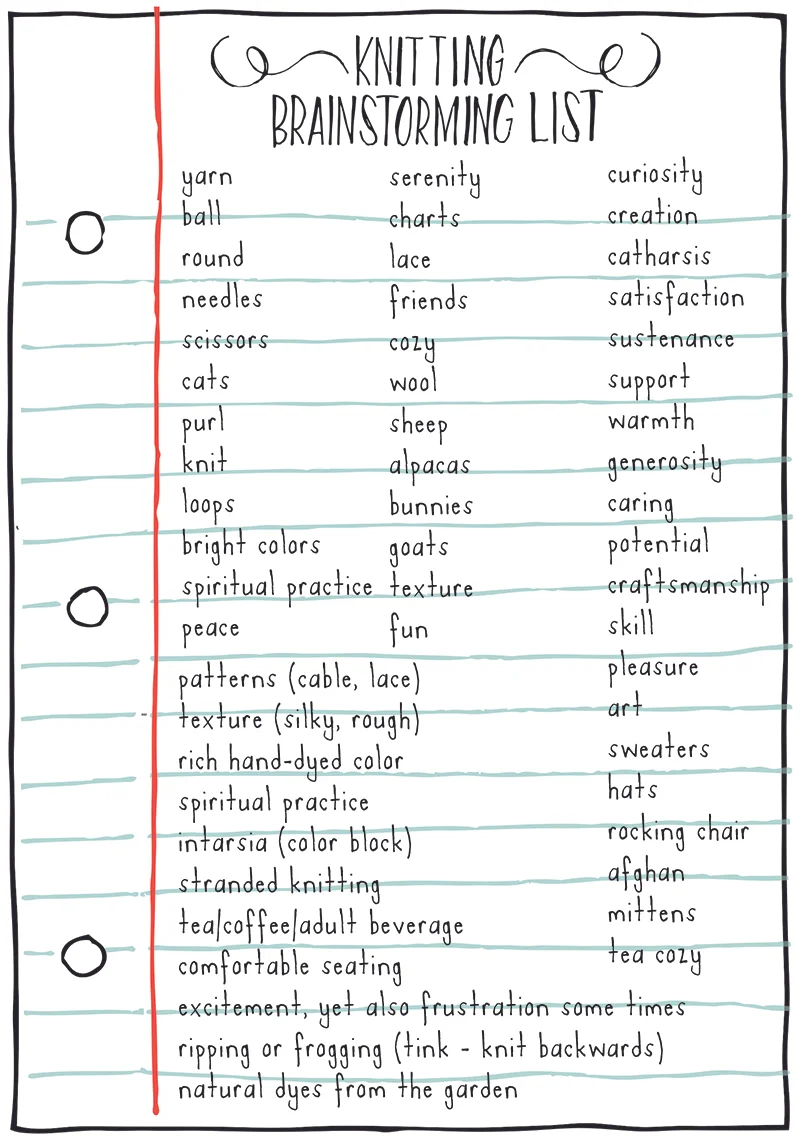 KNITTING
BRAINSTORMING LIST
yarn
ball
round
needles
scissors
cats
purl
knit
loops
bright colors
spiritual practice
peace
patterns (cable, lace)
texture (silky, rough)
rich hand-dyed color
spiritual practice
intarsia (color block)
stranded knitting
tea/coffee/adult beverage
comfortable seating
excitement, yet also frustration some times
ripping or frogging (tink - knit backwards)
natural dyes from the garden
serenity
charts
lace
friends
cozy
wool
sheep
alpacas
bunnies
goats
texture
fun
curiosity
creation
catharsis
satisfaction
sustenance
support
warmth
generosity
caring
potential
craftsmanship
skill
pleasure
art
sweaters
hats
rocking chair
afghan
mittens
tea cozy